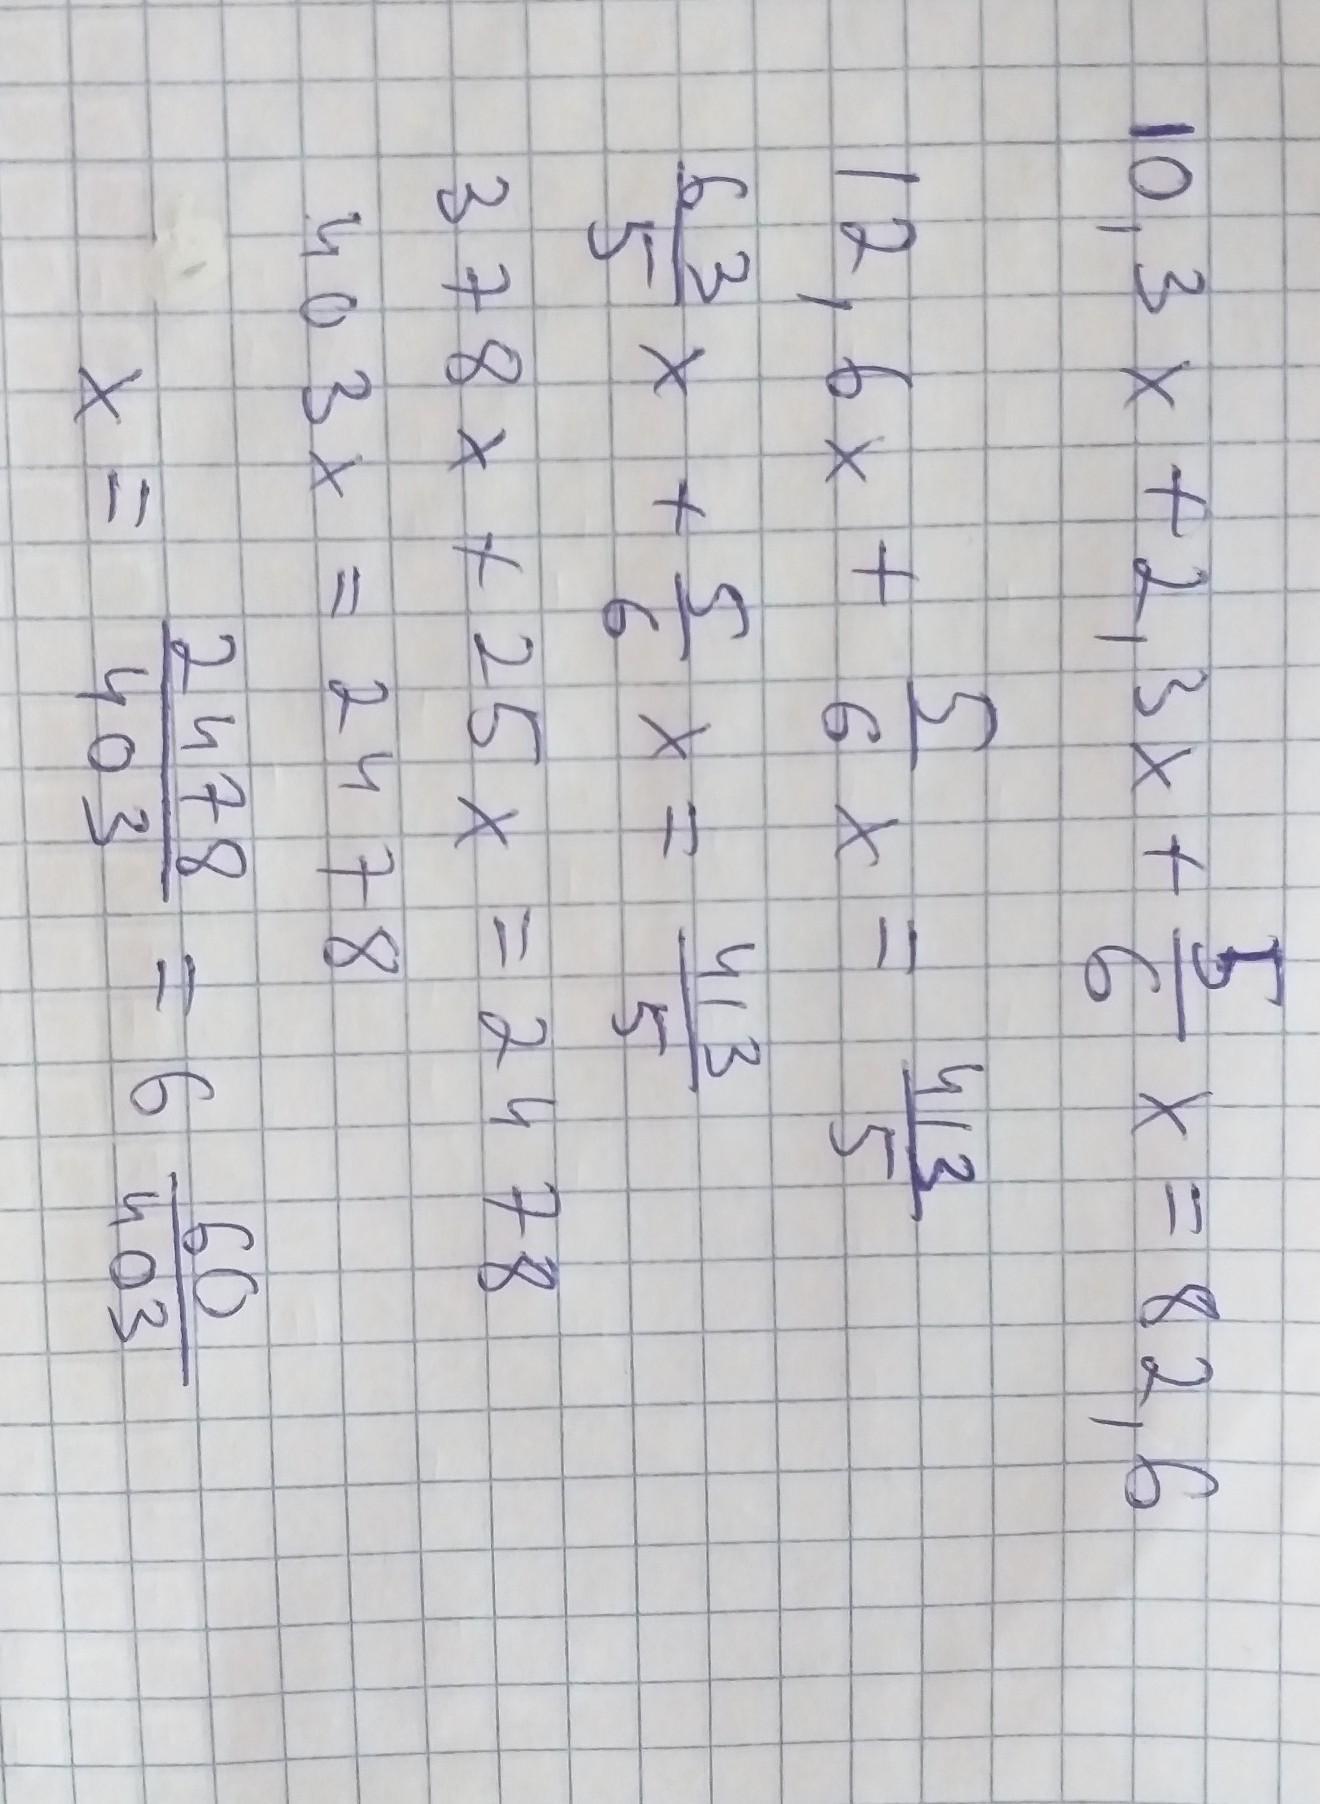 10,3x + 2,3x + 5/6 x = 82,6
12,6x + 5/6 x = 413/5
63/5 x + 5/6 x = 413/5
378x + 25x = 2478
403x = 2478
x = 2478/403 = 6 60/403